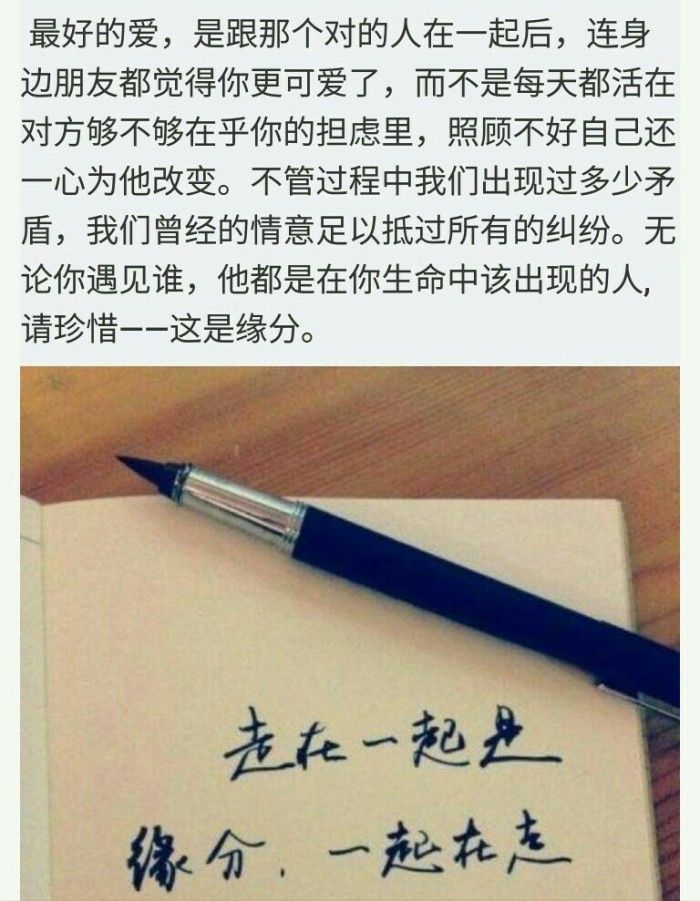 最好的爱，是跟那个对的人在一起后，连身
边朋友都觉得你更可爱了，而不是每天都活在
对方够不够在乎你的担虑里，照顾不好自己还
一心为他改变。不管过程中我们出现过多少矛
盾，我们曾经的情意足以抵过所有的纠纷。无
论你遇见谁，他都是在你生命中该出现的人，
请珍惜——这是缘分。
走在一起是
缘分，一起在走